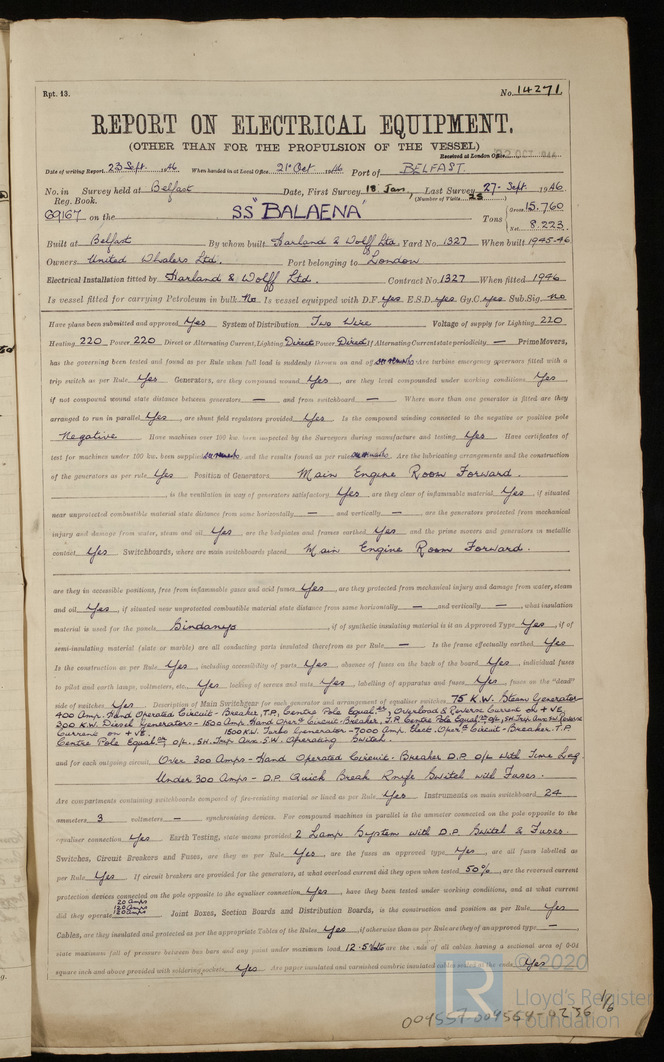 Rpt. 13.
No. 14271
REPORT ON ELECTRICAL EQUIPMENT.
(OTHER THAN FOR THE PROPULSION OF THE VESSEL)
Received at London Office 22 OCT 1946
Date of writing Report 23 Sept. 1946 When handed in at Local Office 21st Oct 1946 Port of BELFAST.
No. in Survey held at Belfast Date, First Survey 18 Jan, Last Survey 27 Sept. 1946
Reg. Book. (Number of Visits 25)
69167 on the SS "BALAENA" Tons Gross 15,760
Net 8,223
Built at Belfast By whom built Harland & Wolff Ltd. Yard No. 1327 When built 1945-46
Owners United Whalers Ltd. Port belonging to London
Electrical Installation fitted by Harland & Wolff Ltd. Contract No. 1327 When fitted 1946
Is vessel fitted for carrying Petroleum in bulk No Is vessel equipped with D.F. Yes E.S.D. Yes Gy.C. Yes Sub.Sig. No
Have plans been submitted and approved Yes System of Distribution Two Wire Voltage of supply for Lighting 220
Heating 220 Power 220 Direct or Alternating Current, Lighting Direct Power Direct If Alternating Current state periodicity — Prime Movers,
has the governing been tested and found as per Rule when full load is suddenly thrown on and off Are turbine emergency governors fitted with a
trip switch as per Rule Yes Generators, are they compound wound Yes, are they level compounded under working conditions Yes,
if not compound wound state distance between generators — and from switchboard — Where more than one generator is fitted are they
arranged to run in parallel Yes, are shunt field regulators provided Yes Is the compound winding connected to the negative or positive pole
Negative Have machines over 100 kw. been inspected by the Surveyors during manufacture and testing Yes Have certificates of
test for machines under 100 kw. been supplied and the results found as per rule Are the lubricating arrangements and the construction
of the generators as per rule Yes Position of Generators Main Engine Room Forward.
, is the ventilation in way of generators satisfactory Yes are they clear of inflammable material Yes, if situated
near unprotected combustible material state distance from same horizontally — and vertically —, are the generators protected from mechanical
injury and damage from water, steam and oil Yes, are the bedplates and frames earthed Yes and the prime movers and generators in metallic
contact Yes Switchboards, where are main switchboards placed Main Engine Room Forward.
are they in accessible positions, free from inflammable gases and acid fumes Yes, are they protected from mechanical injury and damage from water, steam
and oil Yes, if situated near unprotected combustible material state distance from same horizontally — and vertically —, what insulation
material is used for the panels Sindanyo, if of synthetic insulating material is it an Approved Type Yes, if of
semi-insulating material (slate or marble) are all conducting parts insulated therefrom as per Rule — Is the frame effectually earthed Yes
Is the construction as per Rule Yes, including accessibility of parts Yes, absence of fuses on the back of the board Yes, individual fuses
to pilot and earth lamps, voltmeters, etc. Yes locking of screws and nuts Yes, labelling of apparatus and fuses Yes, fuses on the "dead"
side of switches Yes Description of Main Switchgear for each generator and arrangement of equaliser switches 75 K.W. Steam Generator
400 Amp. Hand Operated Circuit-Breaker, T.P., Centre Pole Equal. Overload & Reverse Current on +VE.
300 K.W. Diesel Generators - 1500 Amp. Hand Oper. Circuit-Breaker. T.P. Centre Pole Equal. o/L., SH.Trip. Aux. SW. Reverse
Current on +VE. 1500 KW. Turbo Generator - 7000 Amp. Elect. Oper. Circuit-Breaker. T.P.
Centre Pole Equal. o/L., SH.Trip. Aux. S.W. Operating Switch.
and for each outgoing circuit Over 300 Amps - Hand Operated Circuit-Breaker D.P. o/L With Time Lag.
Under 300 Amps - D.P. Quick Break Knife Switch with Fuses.
Are compartments containing switchboards composed of fire-resisting material or lined as per Rule Yes Instruments on main switchboard 24
ammeters 3 voltmeters — synchronising devices. For compound machines in parallel is the ammeter connected on the pole opposite to the
equaliser connection Yes Earth Testing, state means provided 2 Lamp System with D.P. Switch & Fuses.
Switches, Circuit Breakers and Fuses, are they as per Rule Yes, are the fuses an approved type Yes, are all fuses labelled as
per Rule Yes If circuit breakers are provided for the generators, at what overload current did they open when tested 50%, are the reversed current
protection devices connected on the pole opposite to the equaliser connection Yes, have they been tested under working conditions, and at what current
did they operate 20 amps 120 amps 120 amps Joint Boxes, Section Boards and Distribution Boards, is the construction and position as per Rule Yes
Cables, are they insulated and protected as per the appropriate Tables of the Rules Yes, if otherwise than as per Rule are they of an approved type —,
state maximum fall of pressure between bus bars and any point under maximum load 12.5 Volts are the ends of all cables having a sectional area of 0·04
square inch and above provided with soldering sockets Yes Are paper insulated and varnished cambric insulated cables sealed at the ends Yes
© 2020
LR
Lloyd's Register
Foundation
1/6
004557-004564-0236